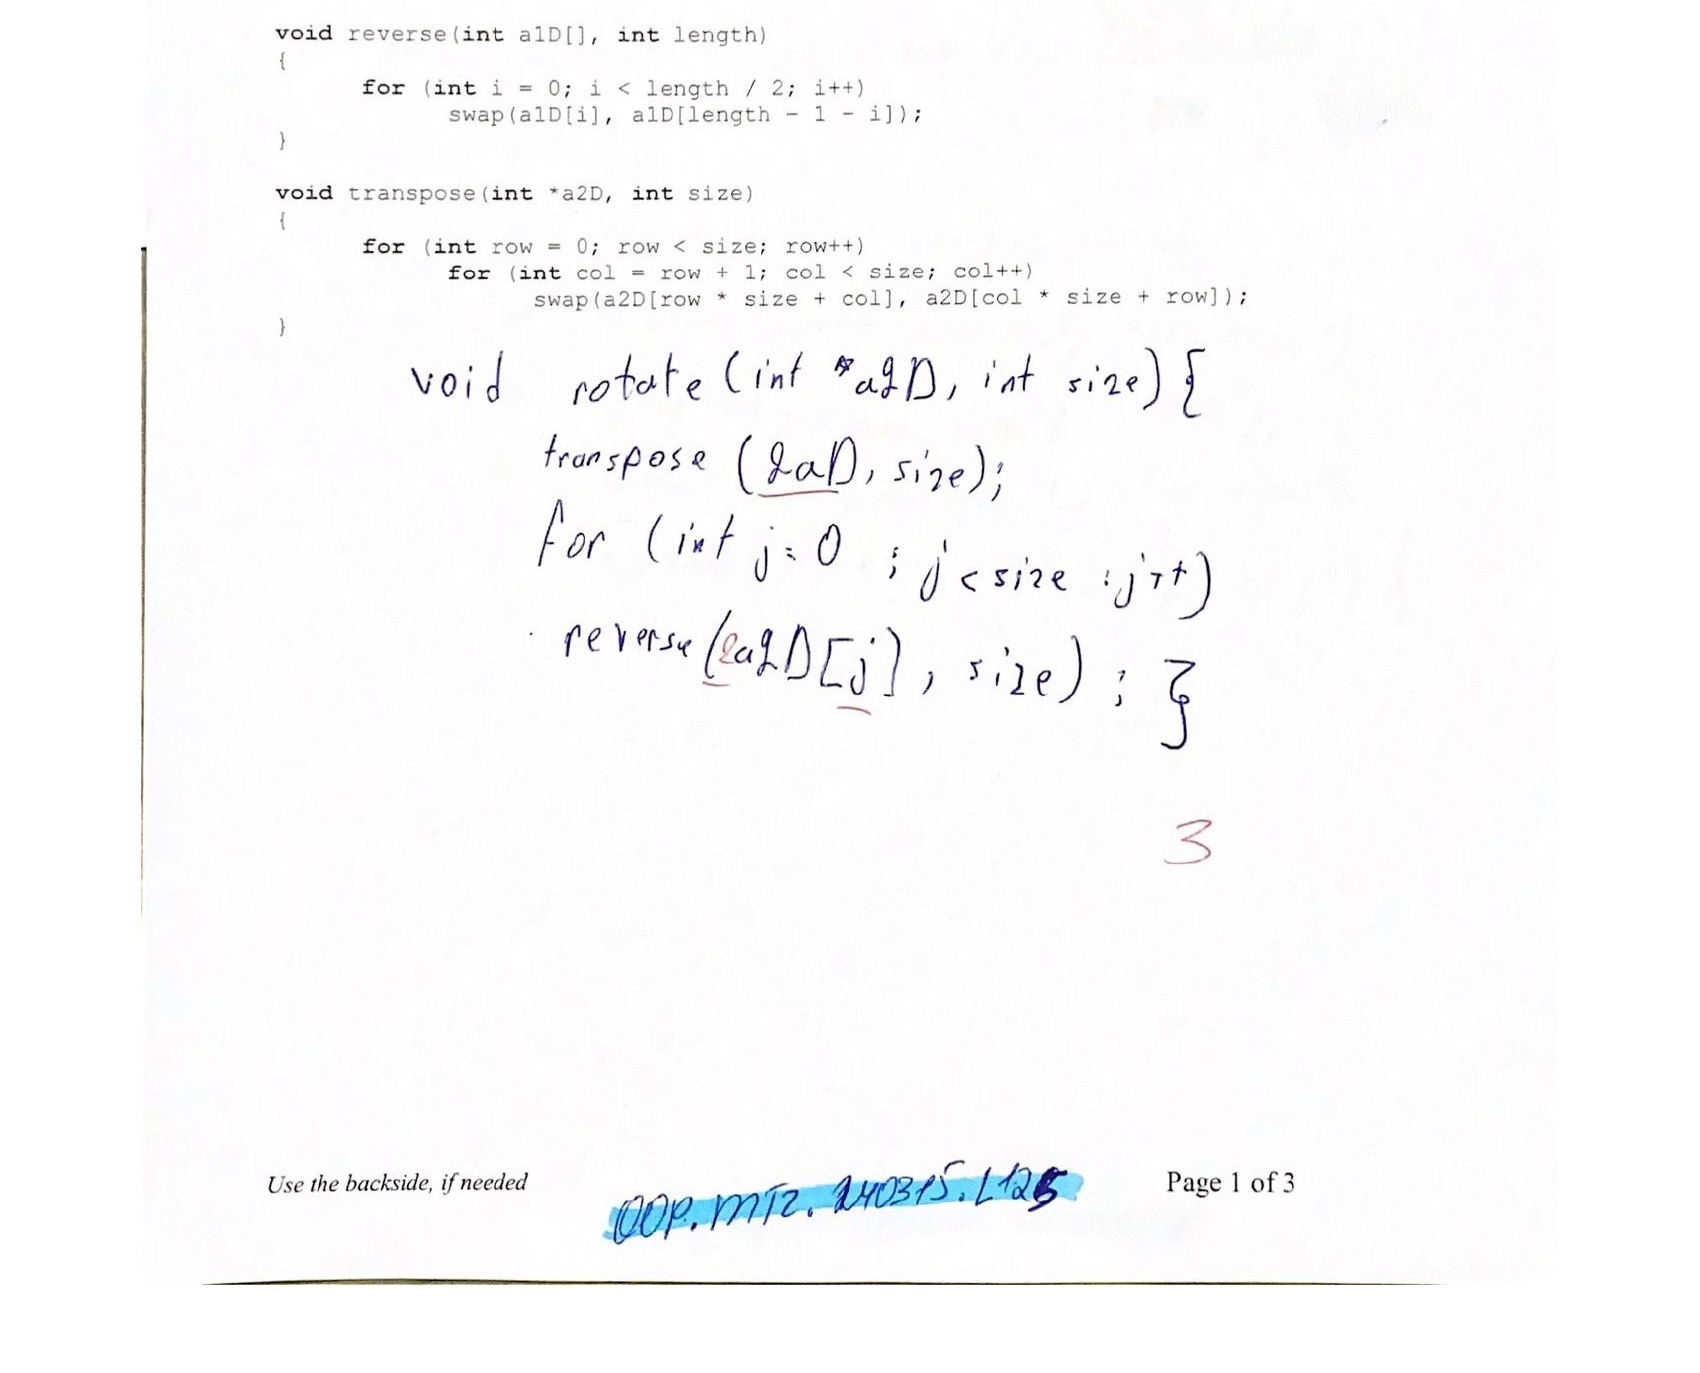 void reverse(int a1D[], int length)
{
for (int i = 0; i < length / 2; i++)
swap(a1D[i], a1D[length - 1 - i]);
}
void transpose(int *a2D, int size)
{
for (int row = 0; row < size; row++)
for (int col = row + 1; col < size; col++)
swap(a2D[row * size + col], a2D[col * size + row]);
}
void rotate (int *a2D, int size) {
transpose (2aD, size);
for (int j = 0 ; j < size ; j++)
reverse(&a2D[j], size) ; }
3
Use the backside, if needed
OOP.MT2.240315.L125
Page 1 of 3